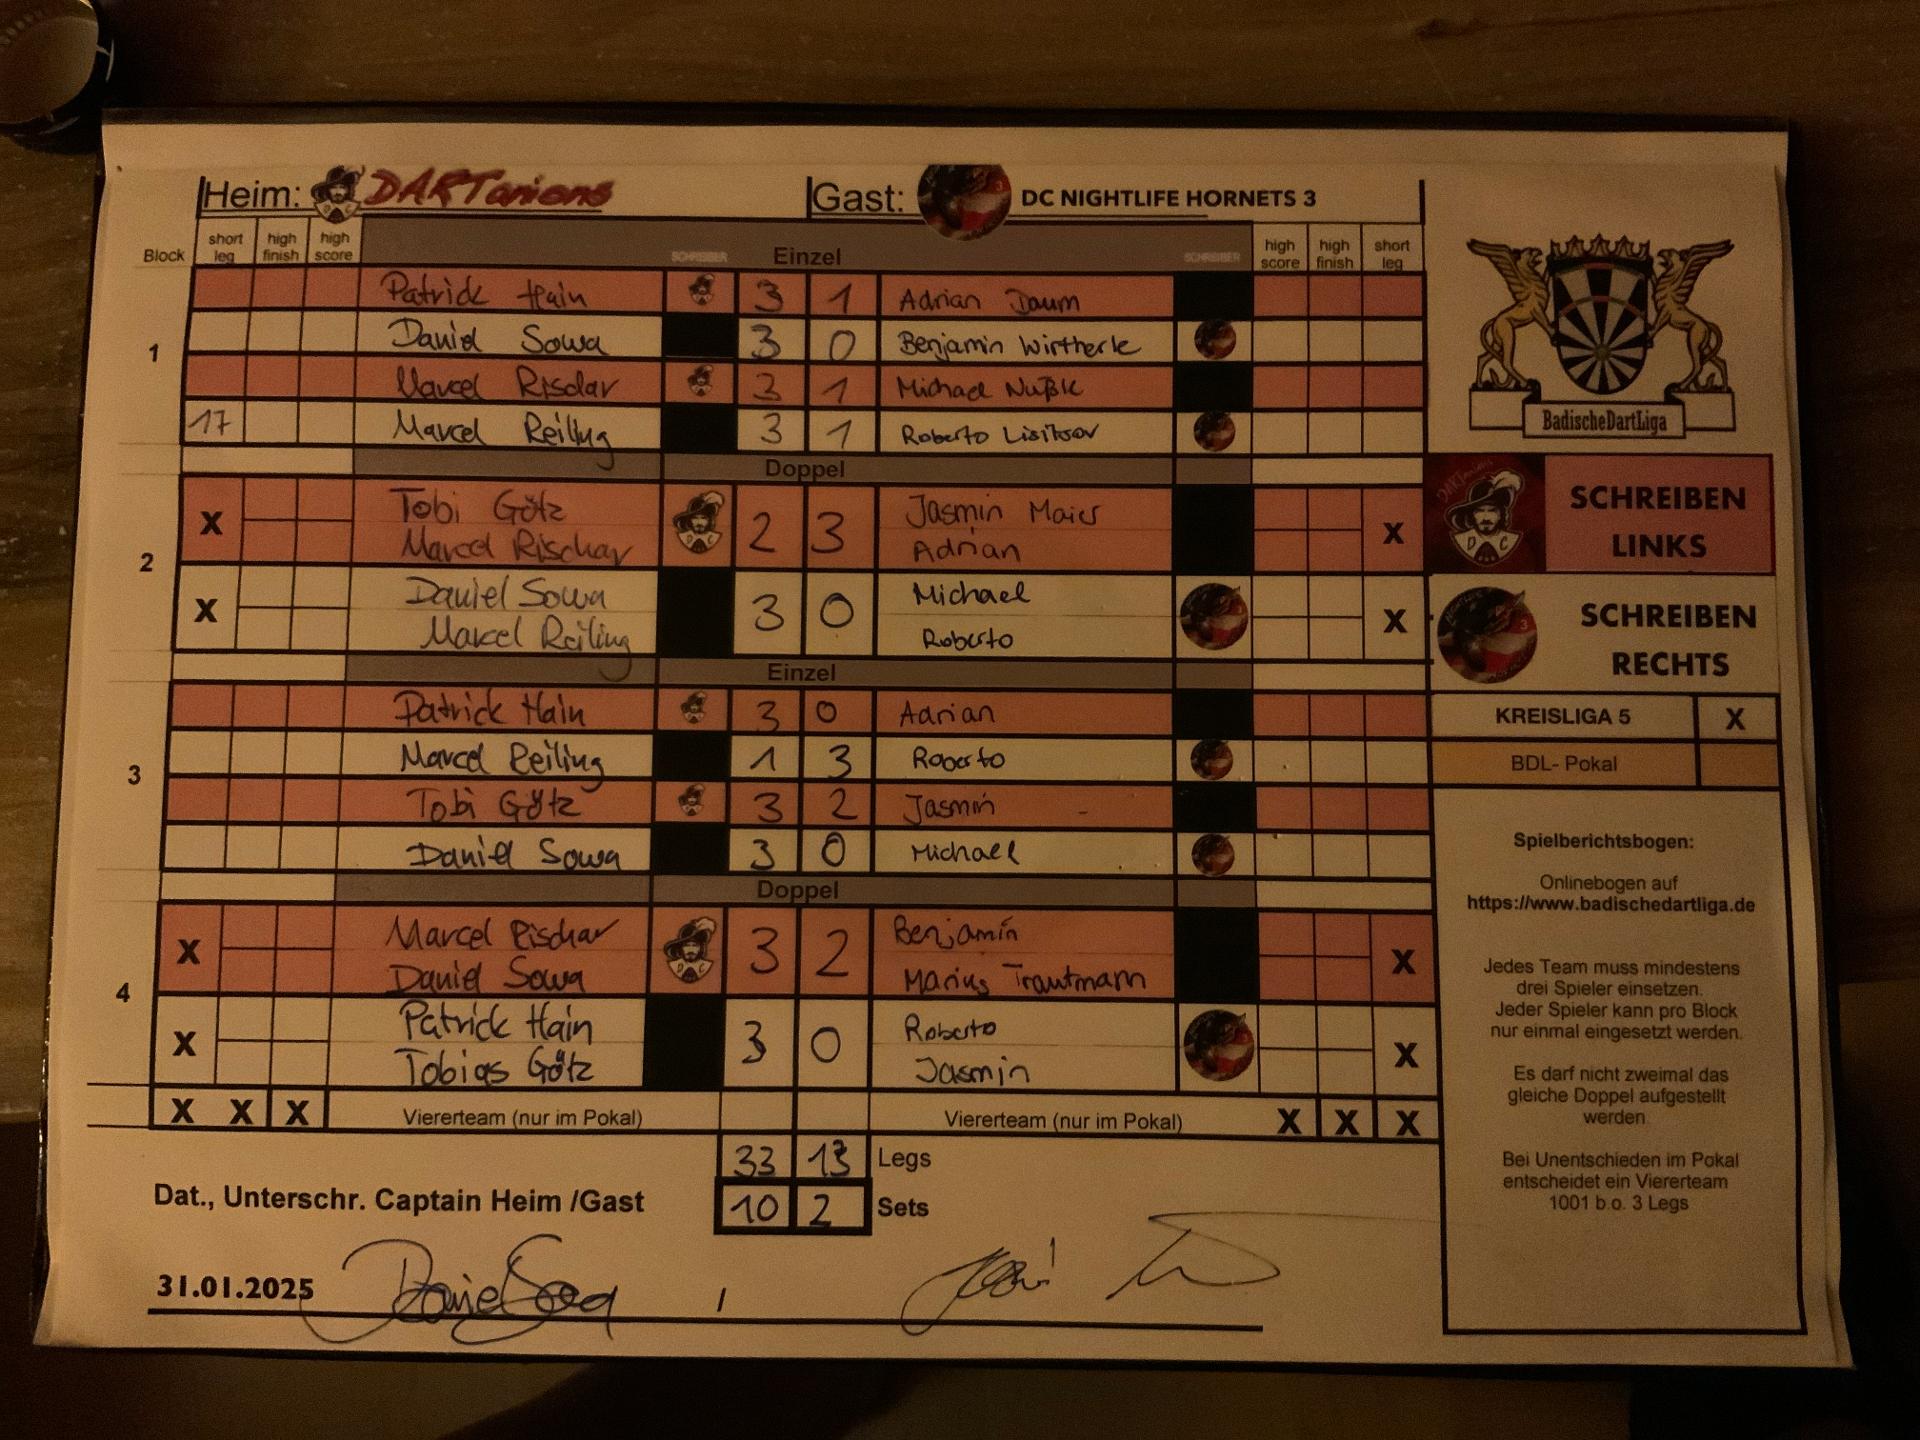 Heim: DARTanions Gast: DC NIGHTLIFE HORNETS 3
Block short leg high finish high score SCHREIBER Einzel SCHREIBER high score high finish short leg
1
Patrick Hain 3 1 Adrian Daum
Daniel Sowa 3 0 Benjamin Wirtherle
Marcel Rischar 3 1 Michael Nußle
17 Marcel Reiling 3 1 Roberto
Doppel
2
X Tobi Götz 2 3 Jasmin Maier X
Marcel Rischar Adrian
X Daniel Sowa 3 0 Michael X
Marcel Reiling Roberto
Einzel
3
Patrick Hain 3 0 Adrian
Marcel Reiling 1 3 Roberto
Tobi Götz 3 2 Jasmin
Daniel Sowa 3 0 Michael
Doppel
4
X Marcel Rischar 3 2 Benjamin X
Daniel Sowa Marius Trautmann
X Patrick Hain 3 0 Roberto X
Tobias Götz Jasmin
X X X Viererteam (nur im Pokal) Viererteam (nur im Pokal) X X X
33 13 Legs
Dat., Unterschr. Captain Heim /Gast 10 2 Sets
31.01.2025 Daniel Sowa /
BadischeDartLiga
DARTanions
D C
SCHREIBEN
LINKS
SCHREIBEN
RECHTS
KREISLIGA 5 X
BDL- Pokal
Spielberichtsbogen:
Onlinebogen auf
https://www.badischedartliga.de
Jedes Team muss mindestens
drei Spieler einsetzen.
Jeder Spieler kann pro Block
nur einmal eingesetzt werden.
Es darf nicht zweimal das
gleiche Doppel aufgestellt
werden.
Bei Unentschieden im Pokal
entscheidet ein Viererteam
1001 b.o. 3 Legs